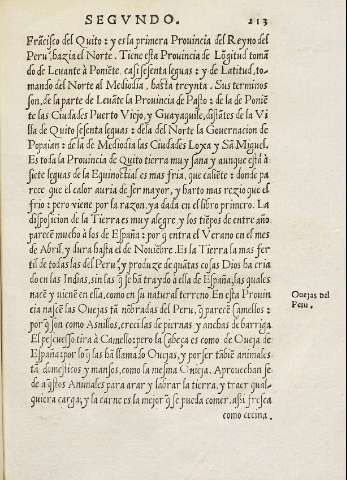 SEGVNDO. 213
Frãcisco del Quito: y es la primera Prouincia del Reyno del
Peru, hazia el Norte. Tiene esta Prouincia de Lõgitud tomã
do de Leuante à Poniẽte, casi sesenta leguas: y de Latitud, to-
mando del Norte al Mediodia, hasta treynta. Sus terminos
son, de la parte de Leuãte la Prouincia de Pasto: de la de Poniẽ
te las Ciudades Puerto Viejo, y Guayaquile, distãtes de la Vi
lla de Quito sesenta leguas: de la del Norte la Gouernacion de
Popaian: de la de Mediodia las Ciudades Loxa y Sã Miguel.
Es toda la Prouincia de Quito tierra muy sana y aunque està à
siete leguas de la Equinoctial es mas fria, que caliẽte: donde pa
rece que el calor auria de ser mayor, y harto mas rezio que el
frio: pero viene por la razon, ya dada en el libro primero. La
disposicion de la Tierra es muy alegre, y los tiẽpos de entre año
parecẽ mucho à los de España: por q̃ entra el Verano en el mes
de Abril, y dura hasta el de Nouiẽbre. Es la Tierra la mas fer
til de todas las del Peru, y produze de quãtas cosas Dios ha cria
do en las Indias, sin las q̃ se hã traydo à ella de España, las quales
nacẽ y vienẽ en ella, como en su natural terreno. En esta Prouin
cia nascẽ las Ouejas tã nõbradas del Peru, q̃ parecẽ Camellos:
por q̃ son como Asnillos, crecidas de piernas y anchas de barriga.
El pescuesso tira à Camello: pero la cabeça es como de Oueja de
España: por lo q̃ las hã llamado Ouejas, y por ser tãbiẽ animales
tã domesticos y mansos, como la mesma Oueja. Aprouechan se
de aq̃stos Animales para arar y labrar la tierra, y traer qual-
quiera carga, y la carne es la mejor q̃ se pueda comer, assi fresca
como cecina.
Ouejas del
Peru.